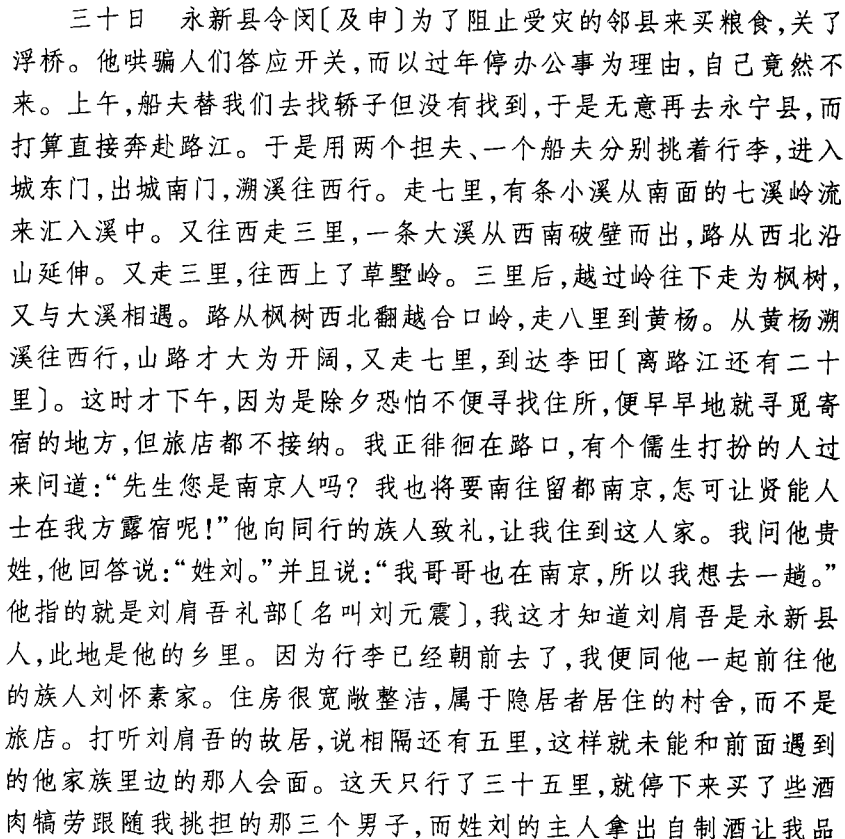 三十日　永新县令闵〔及申〕为了阻止受灾的邻县来买粮食,关了
浮桥。他哄骗人们答应开关,而以过年停办公事为理由,自己竟然不
来。上午,船夫替我们去找轿子但没有找到,于是无意再去永宁县,而
打算直接奔赴路江。于是用两个担夫、一个船夫分别挑着行李,进入
城东门,出城南门,溯溪往西行。走七里,有条小溪从南面的七溪岭流
来汇入溪中。又往西走三里,一条大溪从西南破壁而出,路从西北沿
山延伸。又走三里,往西上了草墅岭。三里后,越过岭往下走为枫树,
又与大溪相遇。路从枫树西北翻越合口岭,走八里到黄杨。从黄杨溯
溪往西行,山路才大为开阔,又走七里,到达李田〔离路江还有二十
里〕。这时才下午,因为是除夕恐怕不便寻找住所,便早早地就寻觅寄
宿的地方,但旅店都不接纳。我正徘徊在路口,有个儒生打扮的人过
来问道:“先生您是南京人吗? 我也将要南往留都南京,怎可让贤能人
士在我方露宿呢!”他向同行的族人致礼,让我住到这人家。我问他贵
姓,他回答说:“姓刘。”并且说:“我哥哥也在南京,所以我想去一趟。”
他指的就是刘肩吾礼部〔名叫刘元震〕,我这才知道刘肩吾是永新县
人,此地是他的乡里。因为行李已经朝前去了,我便同他一起前往他
的族人刘怀素家。住房很宽敞整洁,属于隐居者居住的村舍,而不是
旅店。打听刘肩吾的故居,说相隔还有五里,这样就未能和前面遇到
的他家族里边的那人会面。这天只行了三十五里,就停下来买了些酒
肉犒劳跟随我挑担的那三个男子,而姓刘的主人拿出自制酒让我品